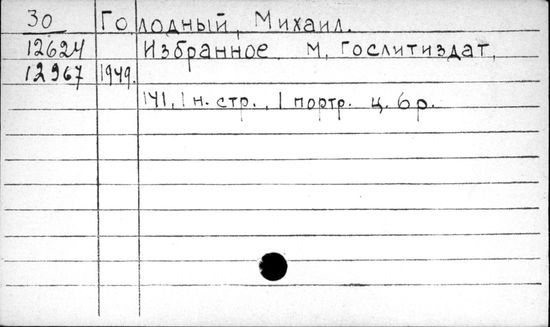 30 Голодный, Михаил.
12624 Избранное. М, Гослитиздат,
12967 1949.
141, 1 н. стр., 1 портр. ц. 6 р.